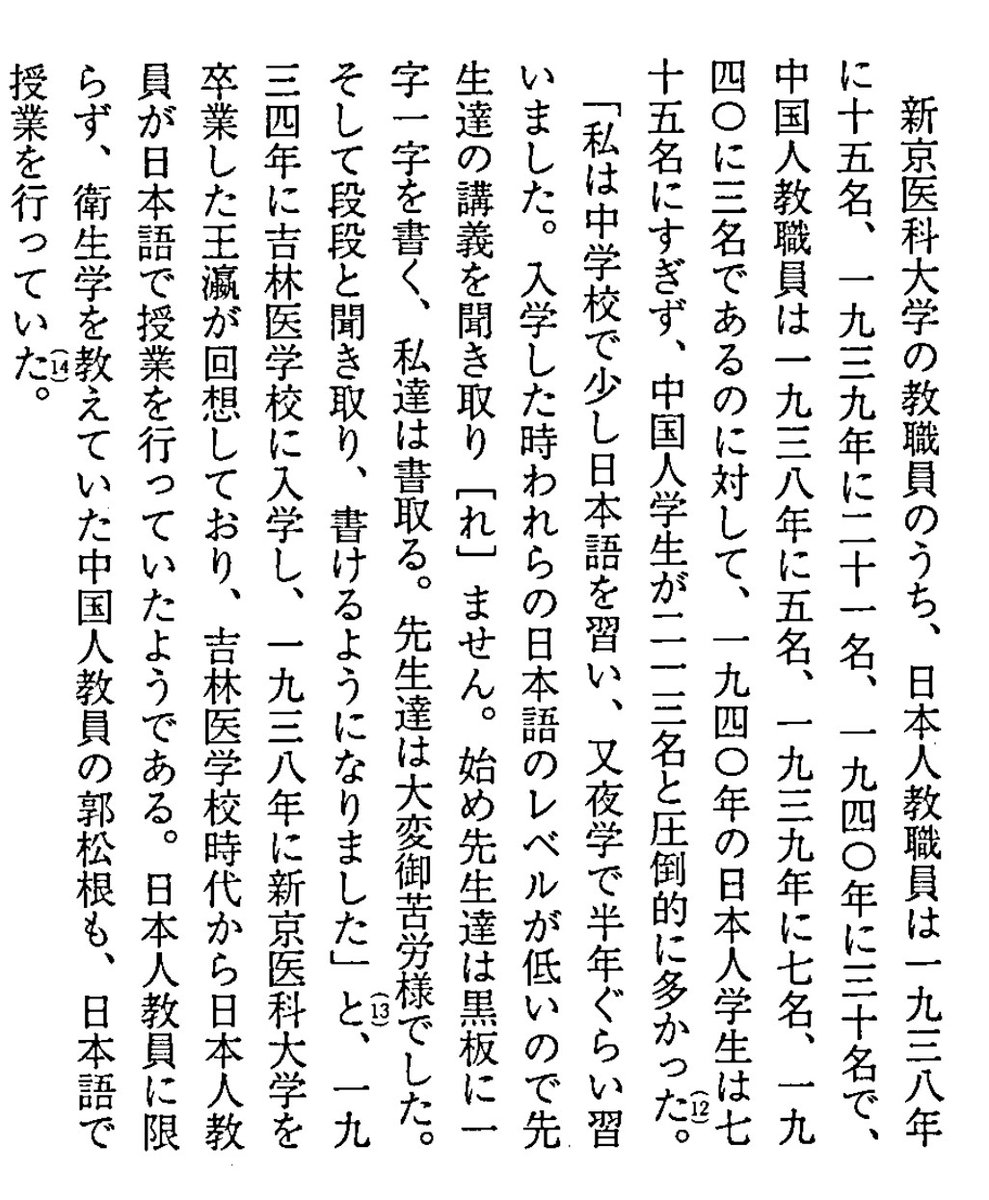 新京医科大学の教職員のうち、日本人教職員は一九三八年
に十五名、一九三九年に二十一名、一九四〇年に三十名で、
中国人教職員は一九三八年に五名、一九三九年に七名、一九
四〇に三名であるのに対して、一九四〇年の日本人学生は七
十五名にすぎず、中国人学生が二一三名と圧倒的に多かった(12)。
「私は中学校で少し日本語を習い、又夜学で半年ぐらい習
いました。入学した時われらの日本語のレベルが低いので先
生達の講義を聞き取り［れ］ません。始め先生達は黒板に一
字一字を書く、私達は書取る。先生達は大変御苦労様でした。
そして段段と聞き取り、書けるようになりました」と(13)、一九
三四年に吉林医学校に入学し、一九三八年に新京医科大学を
卒業した王瀛が回想しており、吉林医学校時代から日本人教
員が日本語で授業を行っていたようである。日本人教員に限
らず、衛生学を教えていた中国人教員の郭松根も、日本語で
授業を行っていた(14)。